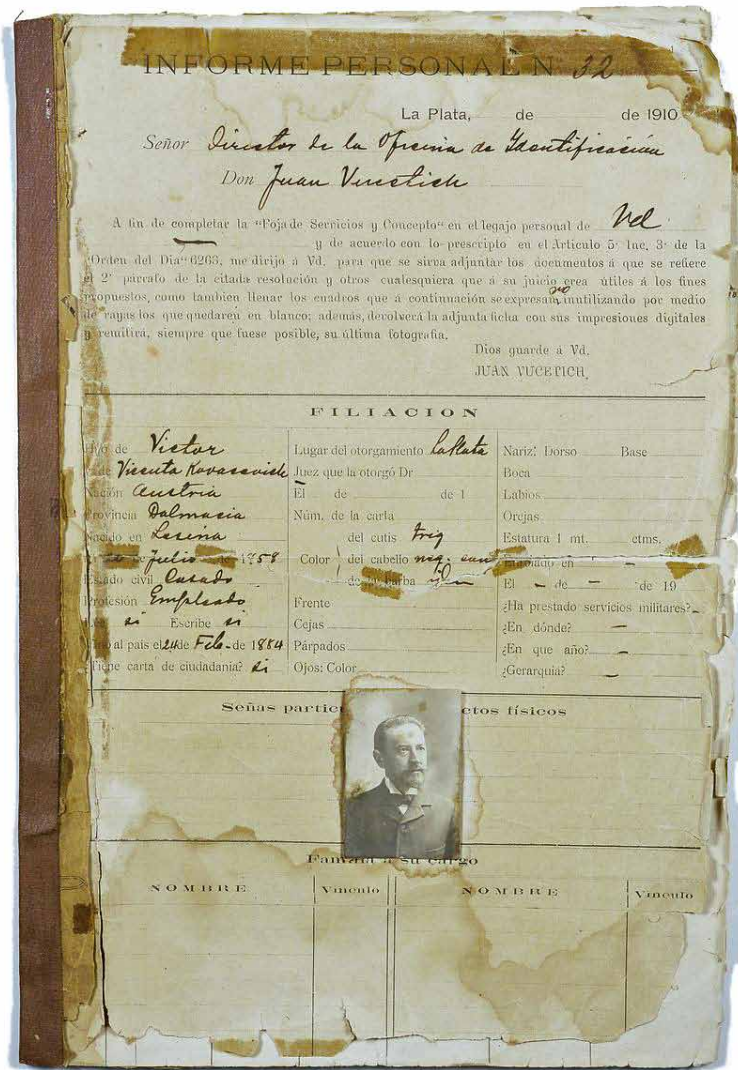 INFORME PERSONAL N 32
La Plata, de de 1910
Señor Director de la Oficina de Identificación
Don Juan Vucetich
A fin de completar la "Foja de Servicios y Concepto" en el legajo personal de Vd
y de acuerdo con lo prescripto en el Artículo 5º Inc. 3º de la
"Orden del Dia" 6263, me dirijo á Vd. para que se sirva adjuntar los documentos á que se refiere
el 2º párrafo de la citada resolución y otros cualesquiera que á su juicio crea útiles á los fines
propuestos, como tambien llenar los cuadros que á continuación se expresan, inutilizando por medio
de rayas los que quedaren en blanco; además, devolverá la adjunta ficha con sus impresiones digitales
y remitirá, siempre que fuese posible, su última fotografia.
Dios guarde á Vd.
JUAN VUCETICH.
FILIACION
de Victor
Vicenta Kovacevich
Austria
Provincia Dalmacia
en Lesina
Julio 1858
Estado civil Casado
Profesión Empleado
si Escribe si
al país el 24 de Feb. de 1884
¿Tiene carta de ciudadania? si
Lugar del otorgamiento La Plata
Juez que la otorgó Dr
El de de 1
Núm. de la carta
Color del cutis trig
del cabello neg.
barba
Frente
Cejas
Párpados
Ojos: Color
Nariz: Dorso Base
Boca
Labios
Orejas
Estatura 1 mt. ctms.
en
El de de 19
¿Ha prestado servicios militares?
¿En dónde?
¿En que año?
¿Gerarquia?
Señas partic ctos físicos
Familia a su cargo
NOMBRE Vinculo NOMBRE Vinculo